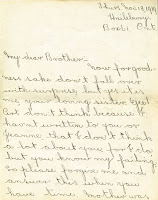 Nov 19, 1919
Huileberry
Box 61 Ont
My dear Brother:-
Now for good-
ness sake don't fall over
with surprise, but yes its
me your loving sister Geo!
But don't think because I
havn't written to you or
Jeanne that I don't think
a lot about you for I do
but you know my failing
so please forgive me and
answer this when you
have time. Mother was